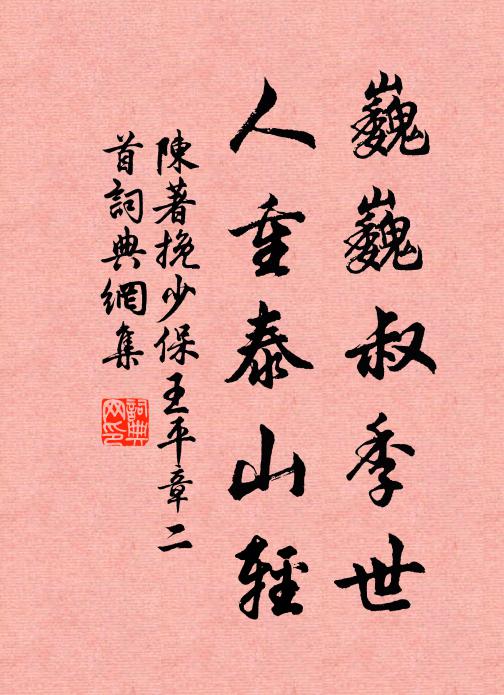 巍巍叔季世
人重泰山輕
陳著挽少保王平章二
首詞典網集
詞典網印